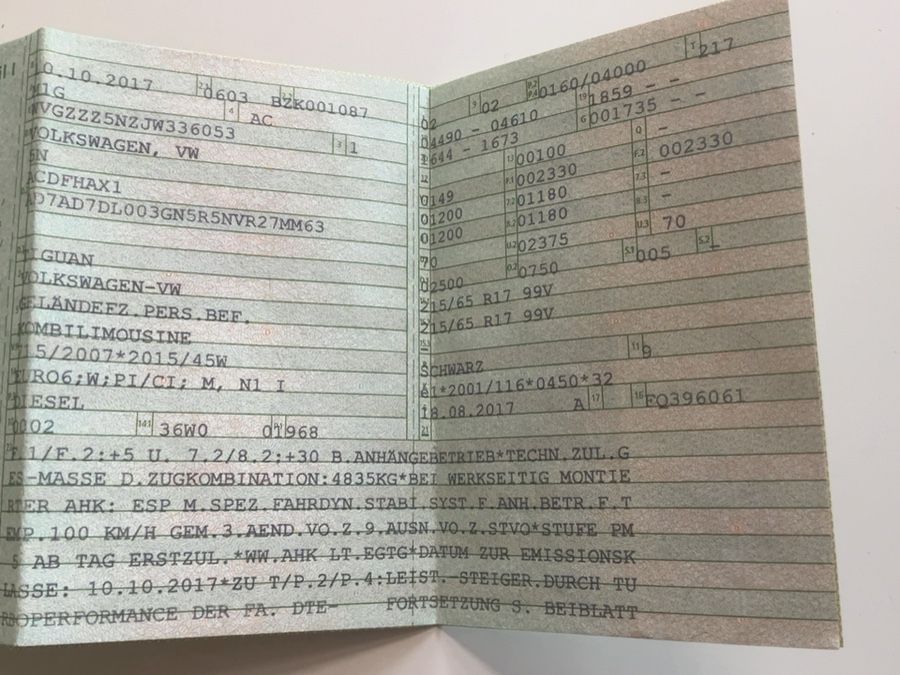 10.10.2017 2.1 0603 2.2 BZK001087
M1G 4 AC
WVGZZZ5NZJW336053 3 1
VOLKSWAGEN, VW
5N
ACDFHAX1
AD7AD7DL003GN5R5NVR27MM63
TIGUAN
VOLKSWAGEN-VW
GELÄNDEFZ.PERS.BEF.
KOMBILIMOUSINE
715/2007*2015/45W
EURO6;W;PI/CI; M, N1 I
DIESEL
0002 14.1 36W0 P.1 01968
02 9 02 P.2/P.4 0160/04000 T 217
04490 - 04610 18 1859 - -
1644 - 1673 G 001735 - -
12 - 13 00100 Q -
0149 F.1 002330 F.2 002330
01200 7.2 01180 7.3 -
01200 8.2 01180 8.3 -
70 U.2 02375 U.3 70
02500 O.2 0750 S.1 005 S.2 -
215/65 R17 99V
215/65 R17 99V
-
SCHWARZ 11 9
e1*2001/116*0450*32
18.08.2017 17 A 16 FQ396061
21
F.1/F.2:+5 U. 7.2/8.2:+30 B.ANHÄNGEBETRIEB*TECHN.ZUL.G
ES-MASSE D.ZUGKOMBINATION:4835KG*BEI WERKSEITIG MONTIE
RTER AHK: ESP M.SPEZ.FAHRDYN.STABI.SYST.F.ANH.BETR.F.T
EMP.100 KM/H GEM.3.AEND.VO.Z.9.AUSN.VO.Z.STVO*STUFE PM
5 AB TAG ERSTZUL.*WW.AHK LT.EGTG*DATUM ZUR EMISSIONSK
LASSE: 10.10.2017*ZU T/P.2/P.4:LEIST.-STEIGER.DURCH TU
RBOPERFORMANCE DER FA. DTE- FORTSETZUNG S. BEIBLATT